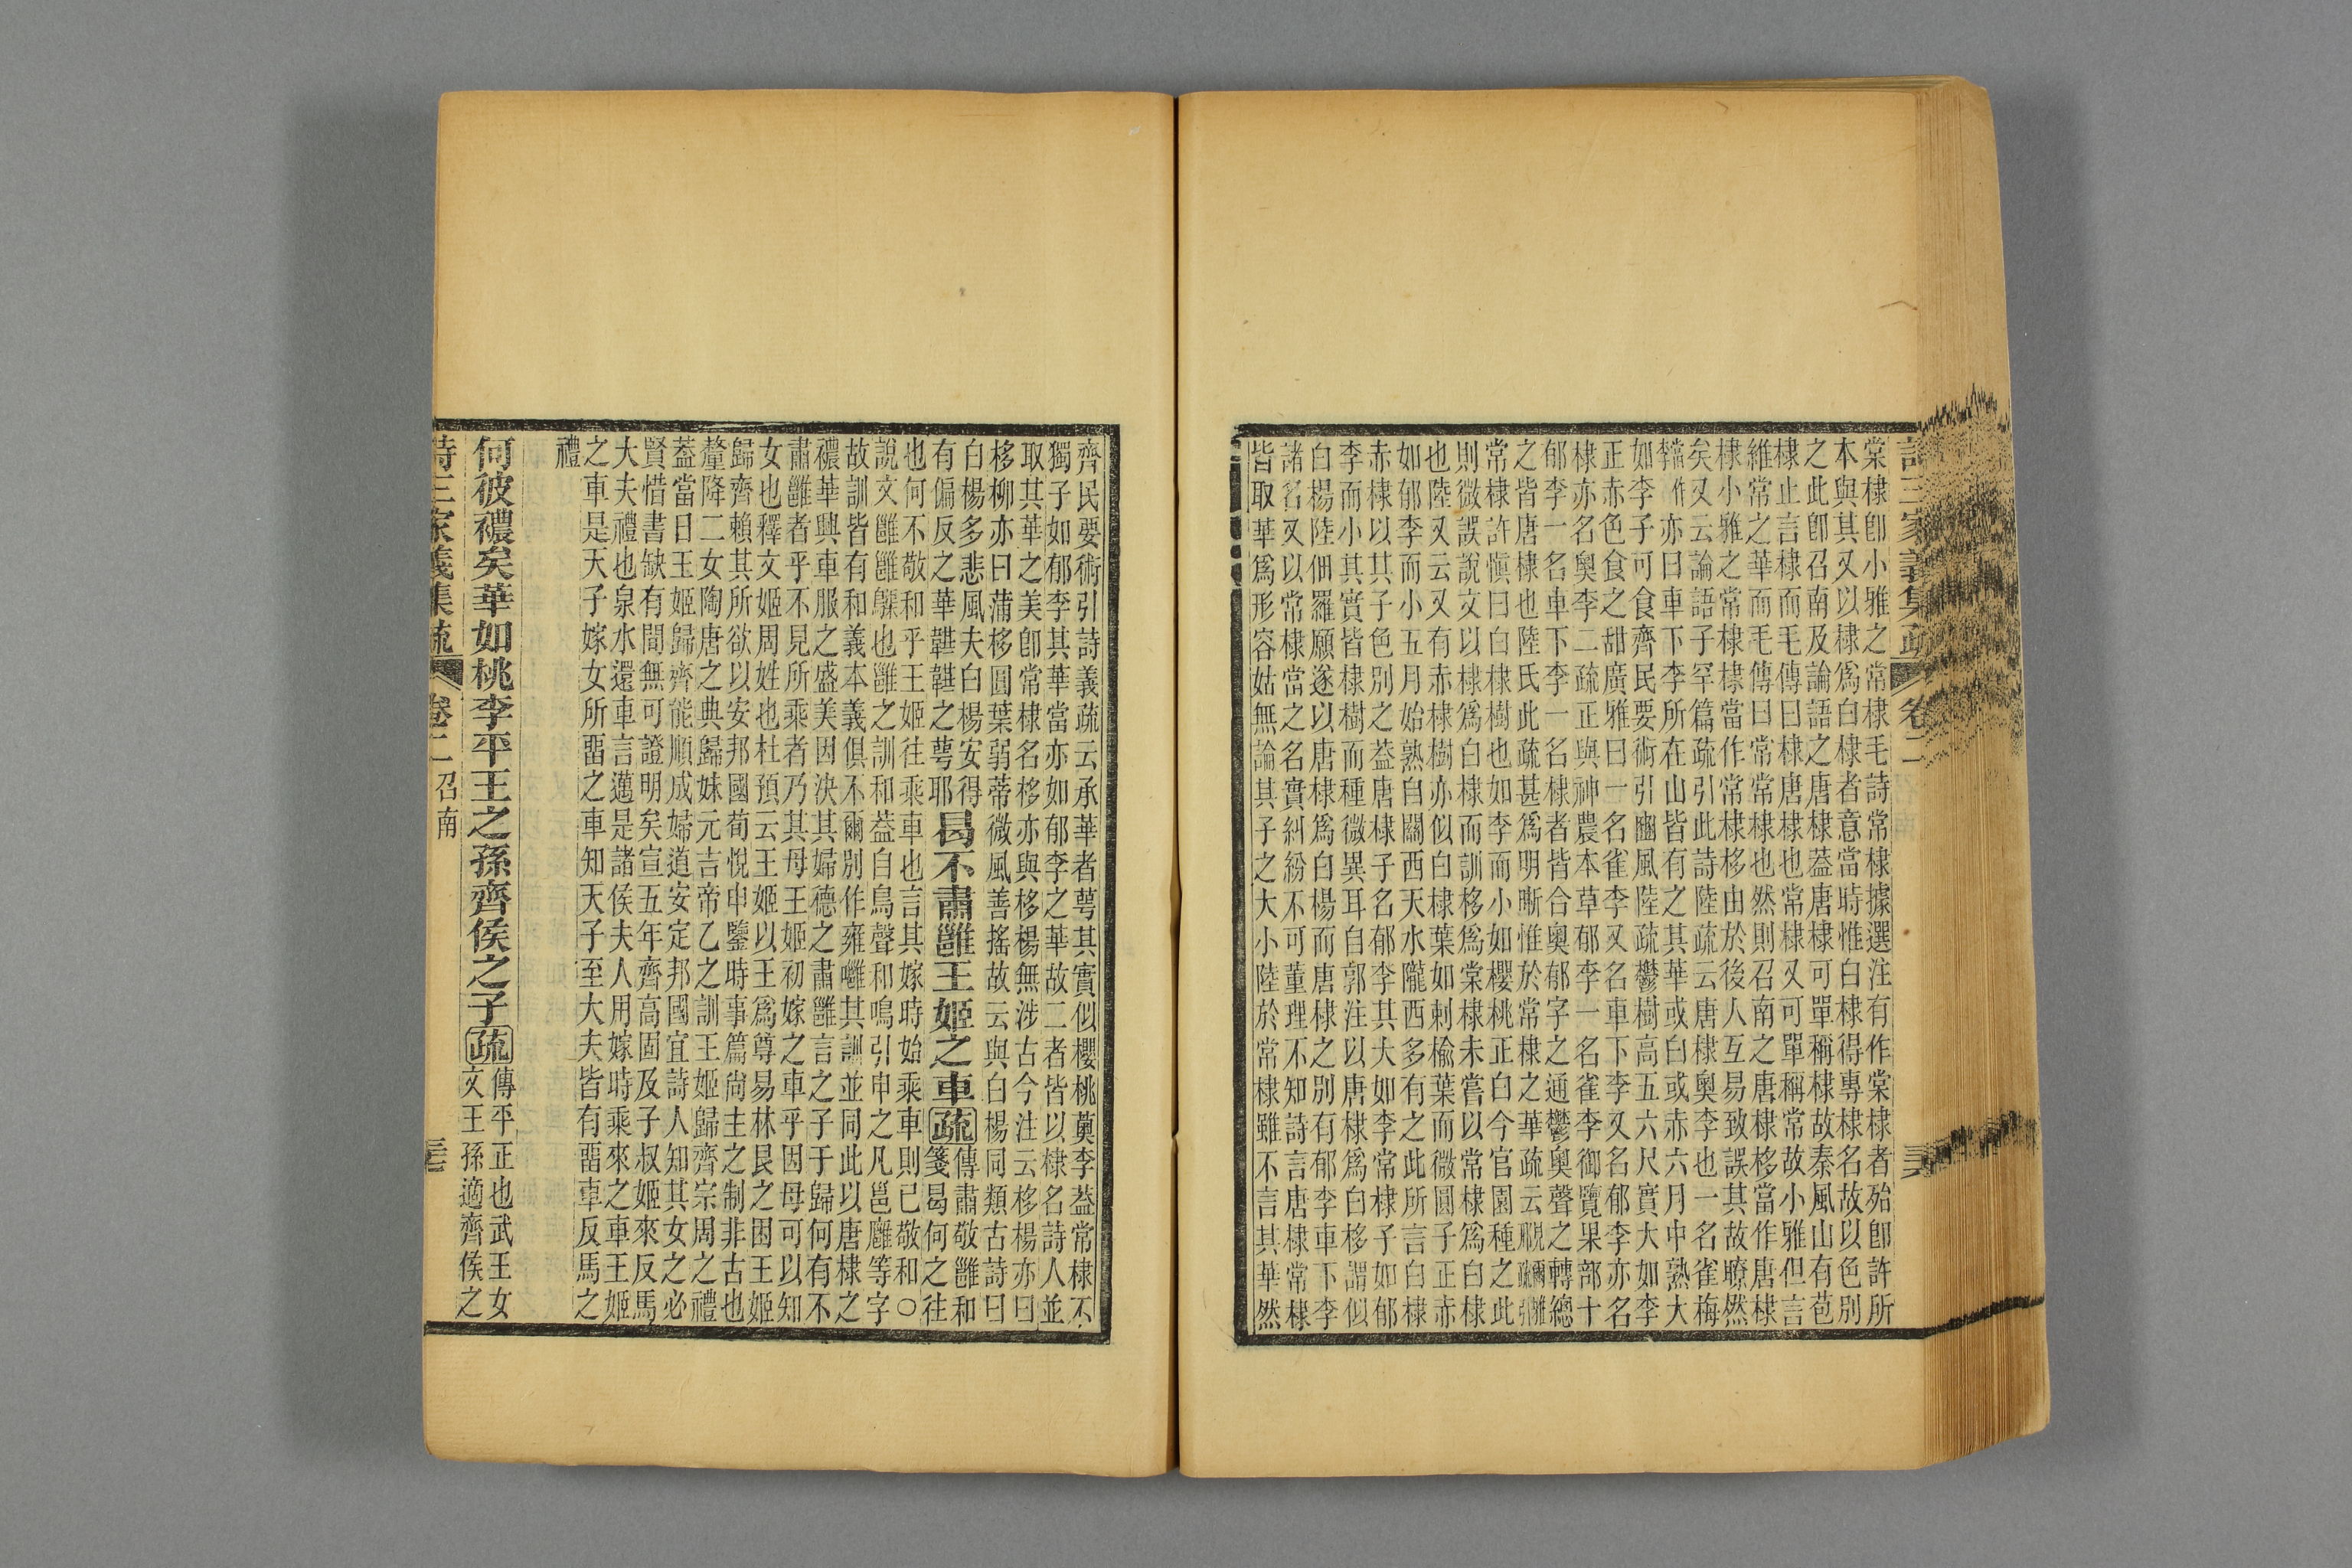 棠棣卽小雅之常棣毛詩常棣據選注有作棠棣者殆卽許所
本與其又以棣爲白棣者意當時惟白棣得專棣名故以色別
之此卽召南及論語之唐棣蓋唐棣可單稱棣故秦風山有苞
棣止言棣而毛傳曰棣唐棣也常棣又可單稱常故小雅但言
維常之華而毛傳曰常常棣也然則召南之唐棣栘當作唐棣
棣小雅之常棣棣當作常棣栘由於後人互易致誤其故瞭然
矣又云論語子罕篇疏引此詩陸疏云唐棣奧李也一名雀梅
亦曰車下李所在山皆有之其華或白或赤六月中熟大
如李子可食齊民要術引豳風陸疏鬱樹高五六尺實大如李
正赤色食之甜廣雅曰一名雀李又名車下李又名郁李亦名
棣亦名奧李二疏正與神農本草郁李一名雀李御覽果部十
郁李一名車下李一名棣者皆合奧郁字之通鬱奧聲之轉總
之皆唐棣也陸氏此疏甚爲明晰惟於常棣之華疏云
常棣許愼曰白棣樹也如李而小如櫻桃正白今官園種之此
則微誤說文以棣爲白棣而訓栘爲棠棣未嘗以常棣爲白棣
也陸又云又有赤棣樹亦似白棣葉如刺楡葉而微圓子正赤
如郁李而小五月始熟自關西天水隴西多有之此所言白棣
赤棣以其子色別之蓋唐棣子名郁李其大如李常棣子如郁
李而小其實皆棣樹而種微異耳自郭注以唐棣爲白栘謂似
白楊陸佃羅願遂以唐棣爲白楊而唐棣之別有郁李車下李
諸名又以常棣當之名實糾紛不可董理不知詩言唐棣常棣
皆取華爲形容姑無論其子之大小陸於常棣雖不言其華然
齊民要術引詩義疏云承華者萼其實似櫻桃薁李蓋常棣不
獨子如郁李其華當亦如郁李之華故二者皆以棣名詩人並
取其華之美卽常棣名栘亦與栘楊無涉古今注云栘楊亦曰
栘柳亦曰蒲栘圓葉弱蒂微風善搖故云與白楊同類古詩曰
白楊多悲風夫白楊安得
有偏反之華韡韡之萼耶曷不肅雝王姬之車疏傳肅敬雝和
箋曷何之往
也何不敬和乎王姬往乘車也言其嫁時始乘車則已敬和○
說文雝雝䳿也雝之訓和蓋自鳥聲和鳴引申之凡邕廱等字
故訓皆有和義本義俱不爾別作雍嗈其訓並同此以唐棣之
襛華興車服之盛美因決其婦德之肅雝言之子于歸何有不
肅雝者乎不見所乘者乃其母王姬初嫁之車乎因母可以知
女也釋文姬周姓也杜預云王姬以王爲尊易林艮之困王姬
歸齊賴其所欲以安邦國荀悅申鑒時事篇尚主之制非古也
釐降二女陶唐之典歸妹元吉帝乙之訓王姬歸齊宗周之禮
蓋當日王姬歸齊能順成婦道安定邦國宜詩人知其女之必
賢惜書缺有間無可證明矣宣五年齊高固及子叔姬來反馬
大夫禮也泉水還車言邁是諸侯夫人用嫁時乘來之車王姬
之車是天子嫁女所畱之車知天子至大夫皆有畱車反馬之
禮
何彼襛矣華如桃李平王之孫齊侯之子疏傳平正也武王女
文王孫適齊侯之
詩三家義集疏 卷二 召南